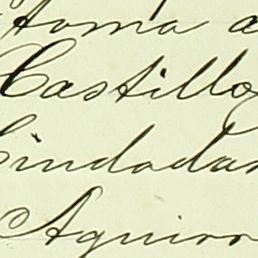 toma a
Castillo
Ciudadan
Aguirr